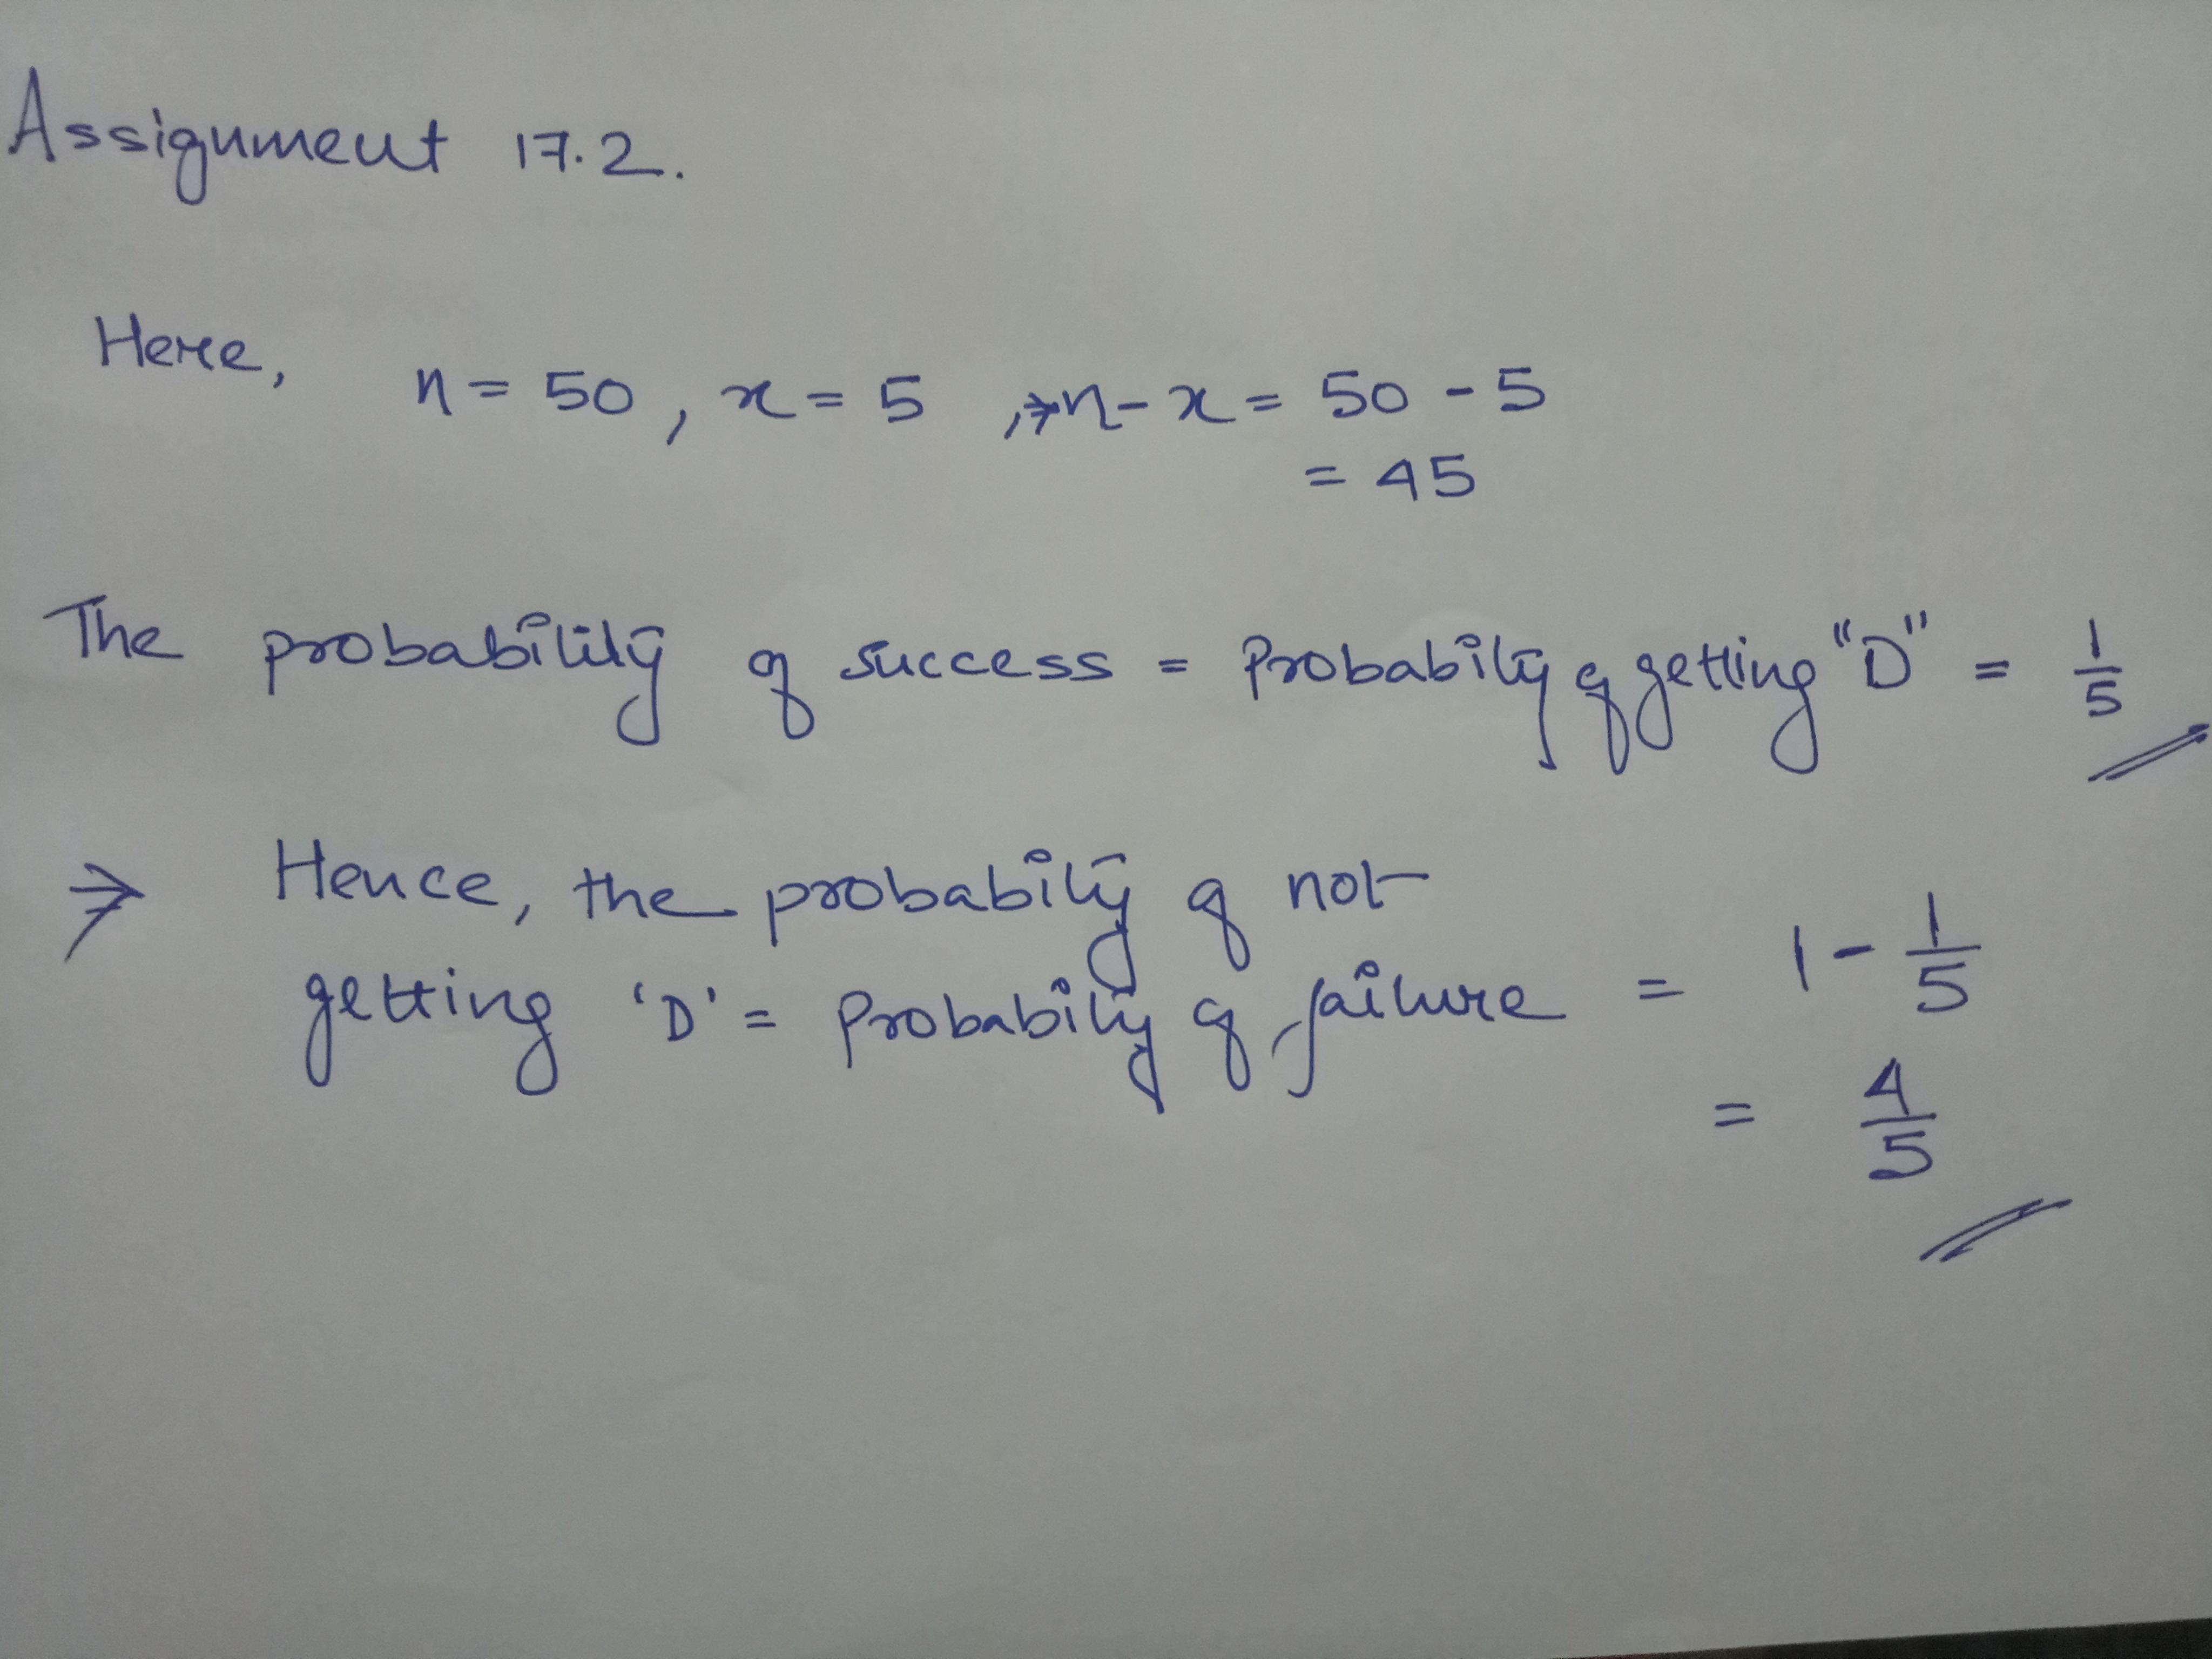 Assignment 17.2.
Here, n = 50, x = 5, ⇒ n - x = 50 - 5
= 45
The probability of success = Probability of getting "D" = 1/5
⇒ Hence, the probability of not
getting 'D' = Probability of failure = 1 - 1/5
= 4/5